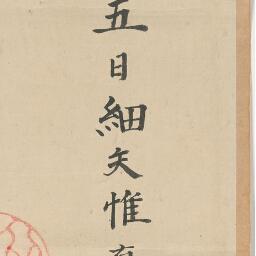 五日細矢惟